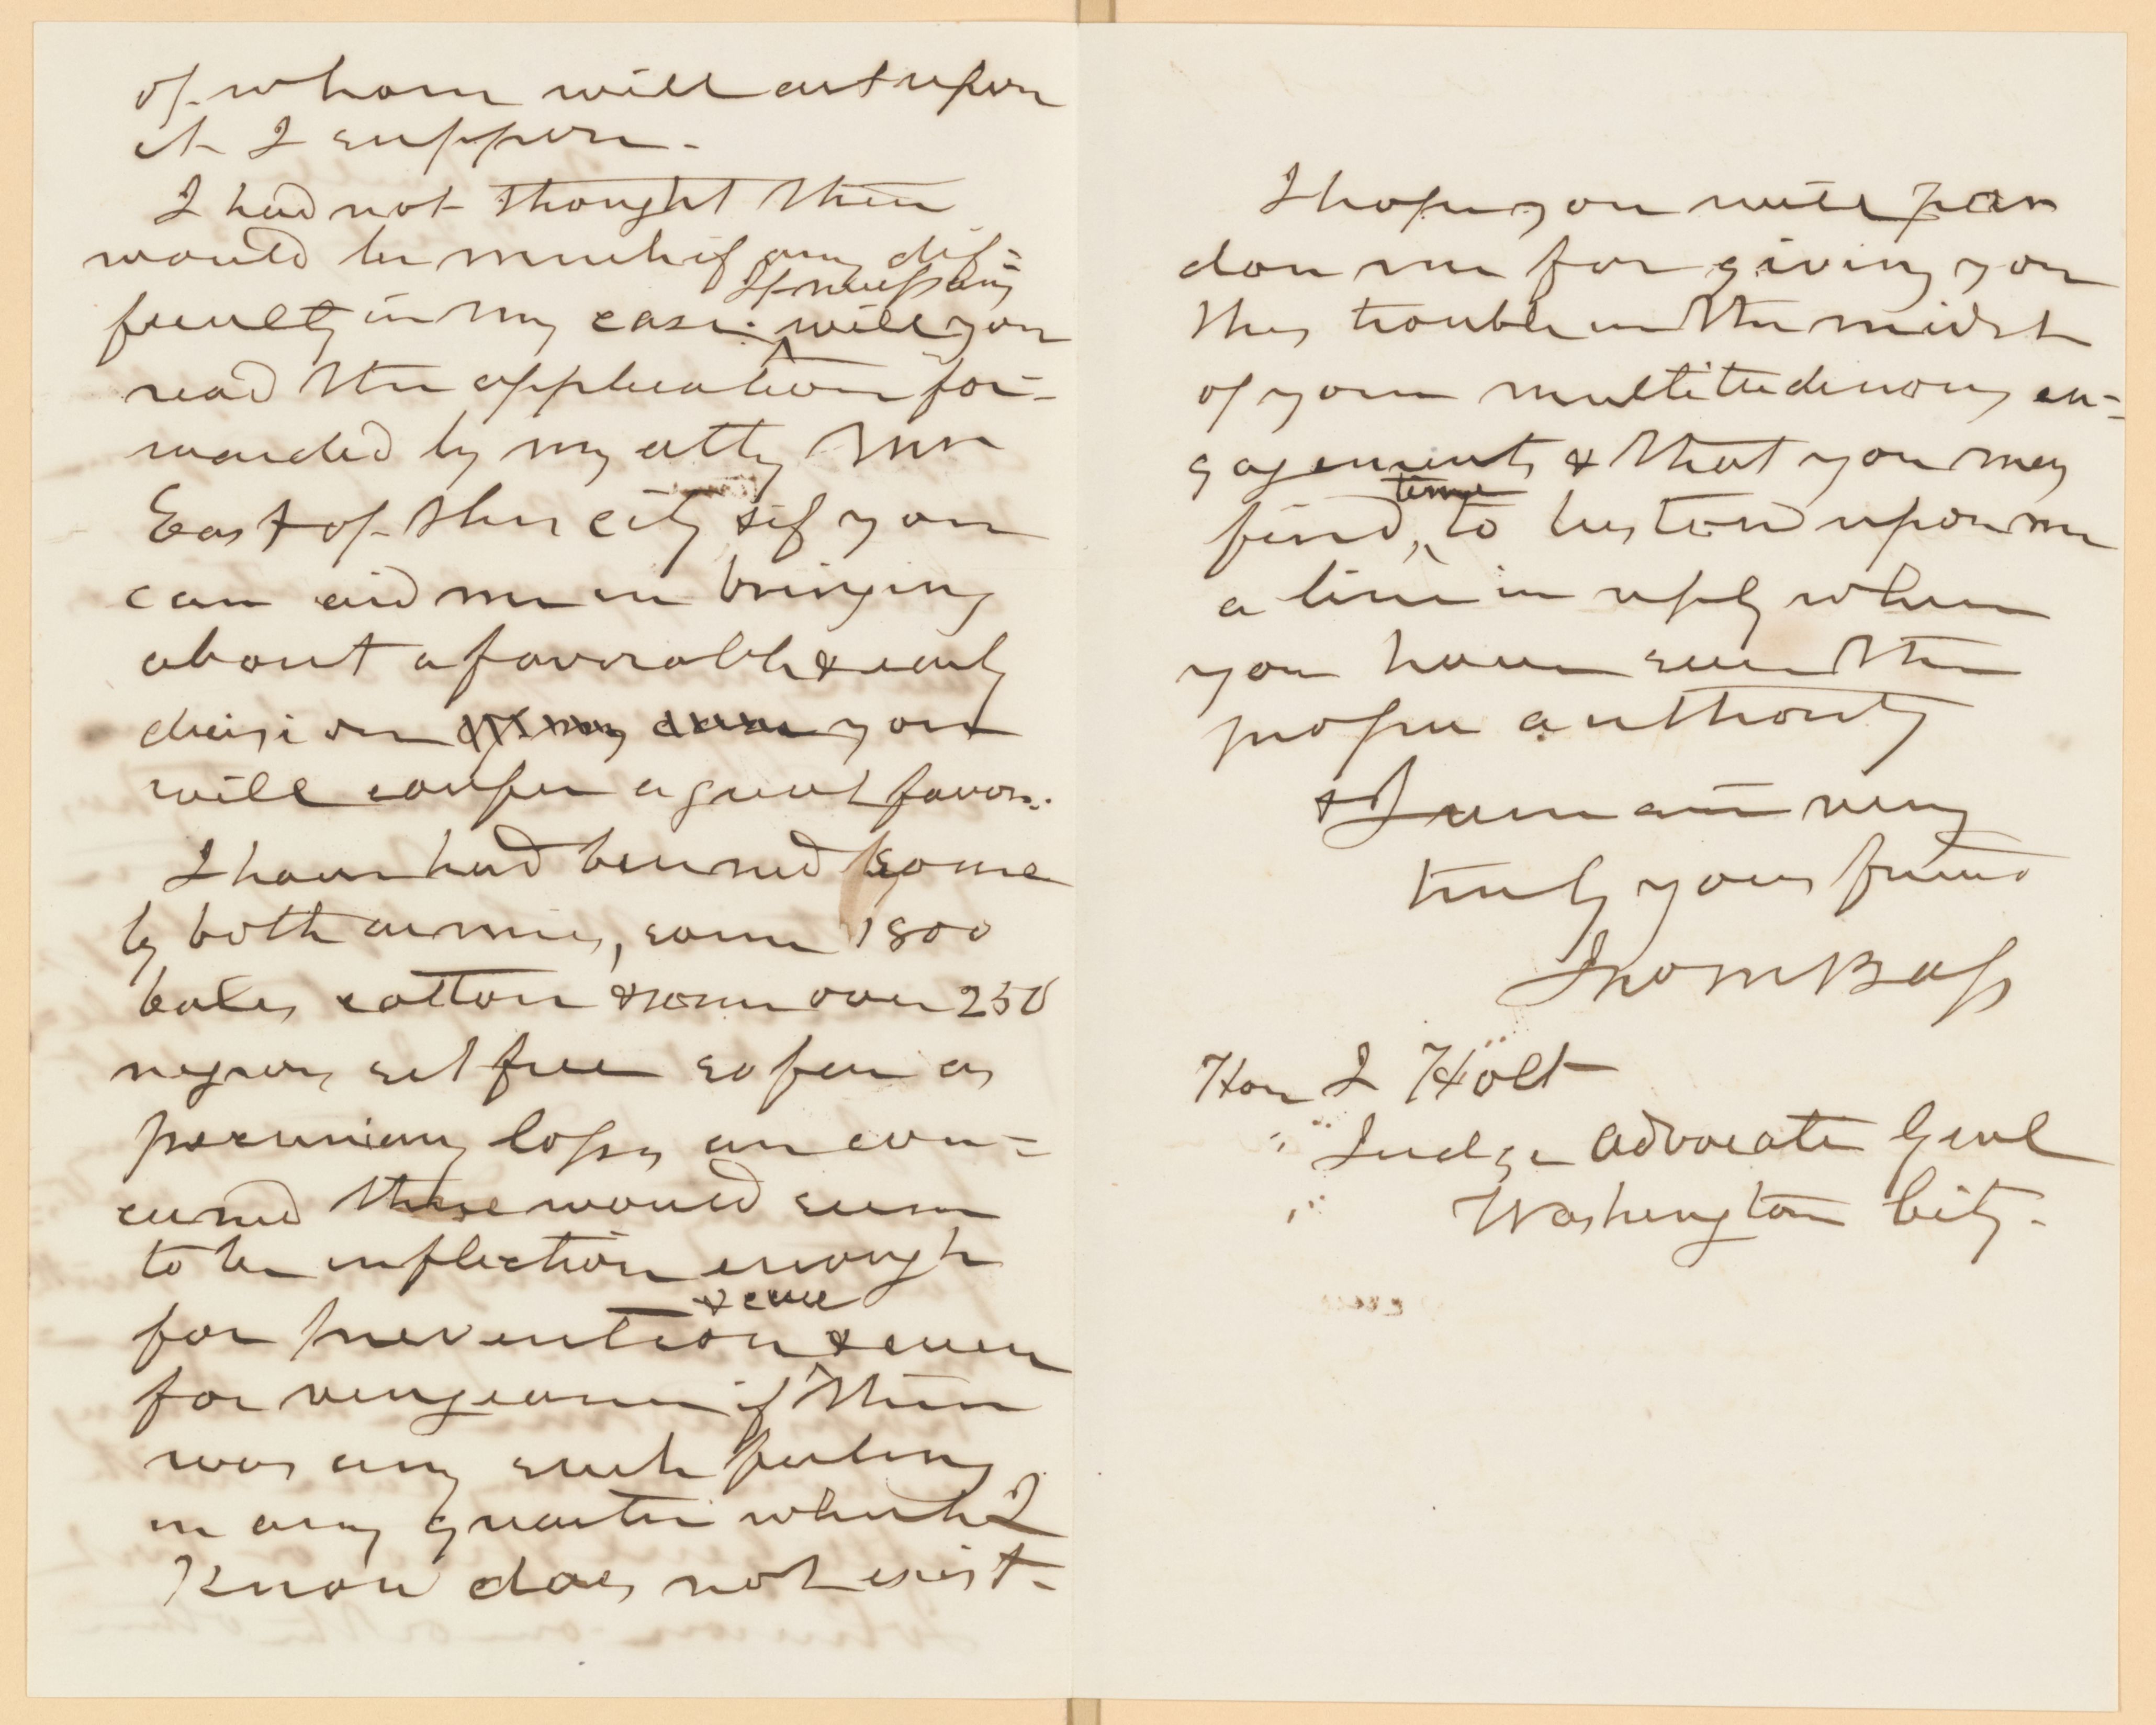 of whom will act upon
it I suppose.
I had not thought there
would be much if any dif=
If necessary
ficulty in my case. will you
read the application for-
warded by my atty Mr
East of this city & if you
can aid me in bringing
about a favorable & early
decision of my case you
will confer a great favor.
I have had burned some
by both armies, some 1800
bales cotton & some over 250
negroes set free so far as
pecuniary losses are con=
cerned these would seem
to be infliction enough
& cure
for prevention & even
for vengeance if there
was any such feeling
in any quarter which I
Know does not exist-
I hope you will par
don me for giving you
this trouble in the midst
of your multitudinous en=
gagements & that you may
time
find, to bestow upon me
a line in reply when
you have seen the
proper authority
& I remain very
truly your friend
Jno M Bass
Hon J Holt
Judge Advocate Genl
Washington City.